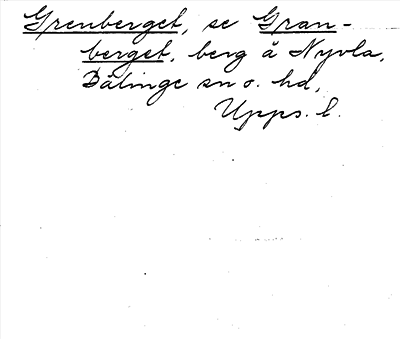 Grenberget, se Gran-
berget, berg å Nyvla,
Bälinge sn o. hd,
Upps. l.